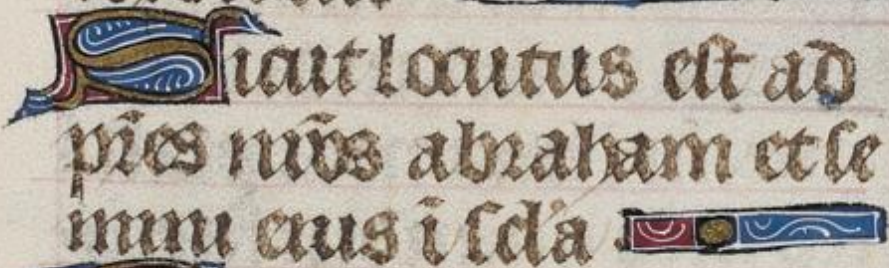 Sicut locutus est ad
pr̄es nr̄os abraham et se
mini eius ī scl̄a.